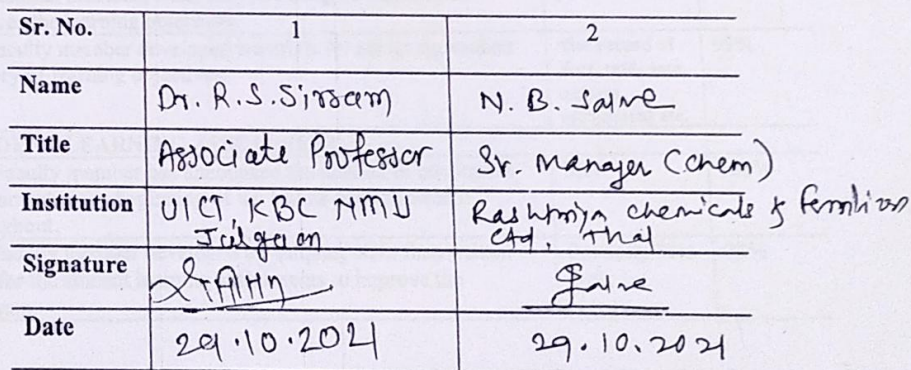 Sr. No. 1 2
Name Dr. R.S. Sirsam N. B. Salve
Title Associate Professor Sr. Manager (chem)
Institution UICT KBC NMU Rashtriya chemicals & Fertilizers
Jalgaon Ltd Thal
Signature Salve
Date 29.10.2021 29.10.2021